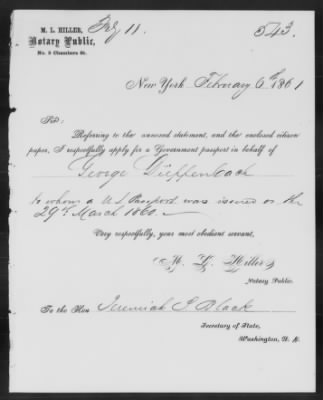 M. L. HILLER,
Notary Public,
No. 3 Chambers St.
Fey 11.
543.
New York February 6th 1861
Sir:
Referring to the annexed statement, and the enclosed citizen
paper, I respectfully apply for a Government passport in behalf of
George Dieffenbach
to whom a U.S. Passport was issued on the
29th March 1860.
Very respectfully, your most obedient servant,
M. L. Hiller
Notary Public.
To the Hon Jeremiah S. Black
Secretary of State,
Washington, D. C.